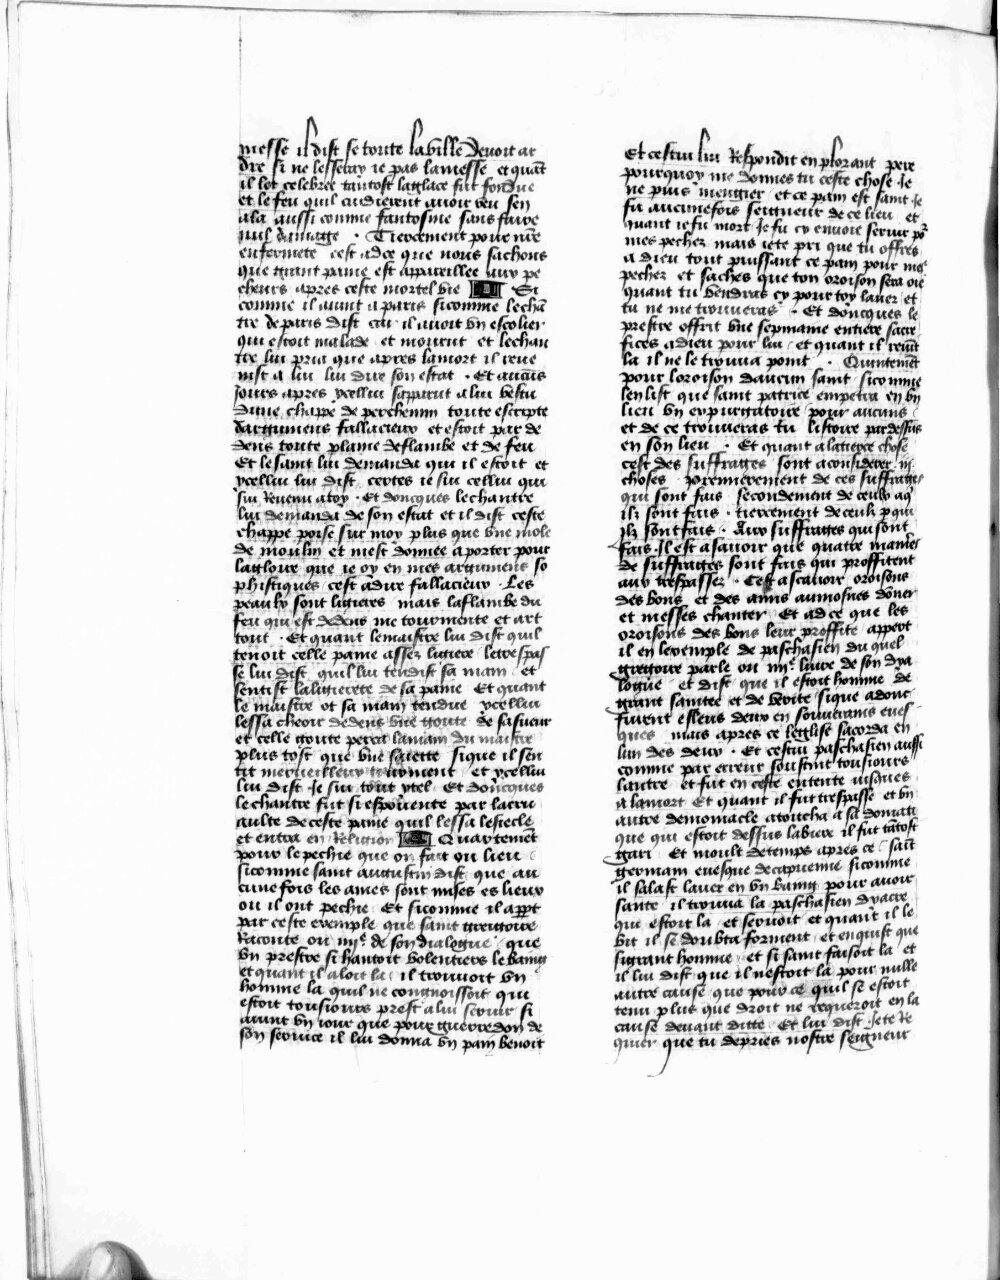 messe il dist se toute la ville devoit ar
dre si ne lesseray ie pas la messe et quāt
il lot celebree tantost la glace fut fondue
et le feu quil cuidierent avoir veu sen
ala aussi comme fantosme sans faire
nul damage . Tiercement pour nr̄e
enfermete cest adce que nous sachons
que grant paine est appareillee aux pe
cheurs apres ceste mortel vie Si
comme il avint a paris sicomme le chā
tre de paris dist car il avoit vn escolier
qui estoit malade et mourut et le chan
tre lui pria que apres la mort il reve
nist a lui lui dire son estat . Et aucūs
jours apres ycellui sapparut a lui vestu
dune chappe de perchemin toute escripte
dargumens fallacieux et estoit par de
dens toute plaine de flambe et de feu
Et le saint lui demanda qui il estoit et
ycellui lui dist certes ie sui cellui qui
sui revenu a toy . Et doncques le chantre
lui demanda de son estat et il dist ceste
chappe poise sur moy plus que vne mole
de moulin et mest donnee a porter pour
la gloire que ie oy en mes argumens so
phistiques cest adire fallacieux . Les
peaulx sont ligieres mais la flambe du
feu qui est dedens me tourmente et art
tout . Et quant le maistre lui dist quil
tenoit celle paine assez ligiere le trespas
se lui dist quil lui tendist sa main et
sentist la ligierete de sa paine Et quant
le maistre ot sa main tendue ycellui
lessa cheoir dedens vne goute de sa sueur
et celle goute perca la main du maistre
plus tost que vne saiette sique il sen
tit merveilleux tourment et ycellui
lui dist Je sui tout ytel . Et doncques
le chantre fut si espouente par la cru
aulte de ceste paine quil lessa le siecle
et entra en religion Quartemēt
pour le pechie que on fait ou lieu
sicomme saint augustin dist que au
cunefois les ames sont mises es lieux
ou il ont pechie Et sicomme il appt
par ceste exemple que saint gregoire
raconte ou iiij.e de son dialogue que
vn prestre si hantoit volentiers le baing
et quant il aloit la il trouvoit vn
homme la quil ne congnoissoit qui
estoit tousiours prest a lui servir si
avint vn iour que pour guerredon de
son service il lui donna vn pain benoit
Et cestui lui respondit en plorant pere
pourquoy me donnes tu ceste chose Je
ne puis mengier et ce pain est saint Je
fu aucunefois seigneur de ce lieu et
quant ie fu mort Je fu cy envoie servir po.r
mes pechez mais ie te pri que tu offres
a dieu tout puissant ce pain pour mes
pechez et saches que ton oroison sera oie
quant tu vendras cy pour toy laver et
tu ne me trouveras . Et doncques le
prestre offrit vne sepmaine entiere sacre
fices a dieu pour lui et quant il revit
la il ne le trouva point . Quintemēt
pour loroison daucun saint sicomme
len list que saint patrice empetra en vn
lieu vn expurgatoire pour aucuns
et de ce trouveras tu listoire par dessus
en son lieu . Et quant a la tierce chose
cest des suffrages sont a considerer iij
choses premierement de ces suffrages
qui sont fais secondement de ceulx a q̄
ilz sont fais . tiercement de ceulx p qui
ilz sont fais . Aux suffrages qui sont
fais Il est a savoir que quatre manieres
de suffrages sont fais qui proffitent
aux trespassez . Cest ascavoir oroisons
des bons et des amis aumosnes dōner
et messes chanter Et ad ce que les
oroisons des bons leur proffite appert
il en lexemple de paschasien du quel
gregoire parle ou iiij.e livre de son dya
logue et dist que il estoit homme de
grant saintee et de verite sique adonc
furent esleus deux en souverains eves
ques mais apres ce leglise sacorda en
lun des deux . Et cestui paschasien aussi
comme par erreur soustint tousiours
lautre et fut en ceste entente iusques
a la mort Et quant il fut trespasse et vn
autre demoniacle atoucha a sa domati
que qui estoit dessus la biere il fut tātost
gari Et moult de temps apres ce saīt
germain evesque de capuenne sicomme
il salast laver en vn baing pour avoir
sante il trouva la paschasien dyacre
qui estoit la et servoit et quant il le
vit il se doubta forment et enquist que
si grant homme et si saint faisoit la et
il lui dist que il nestoit la pour nulle
autre cause que pour ce quil se estoit
tenu plus que droit ne requeroit en la
cause devant ditte Et lui dist Je te re
quier que tu depries nostre seigneur